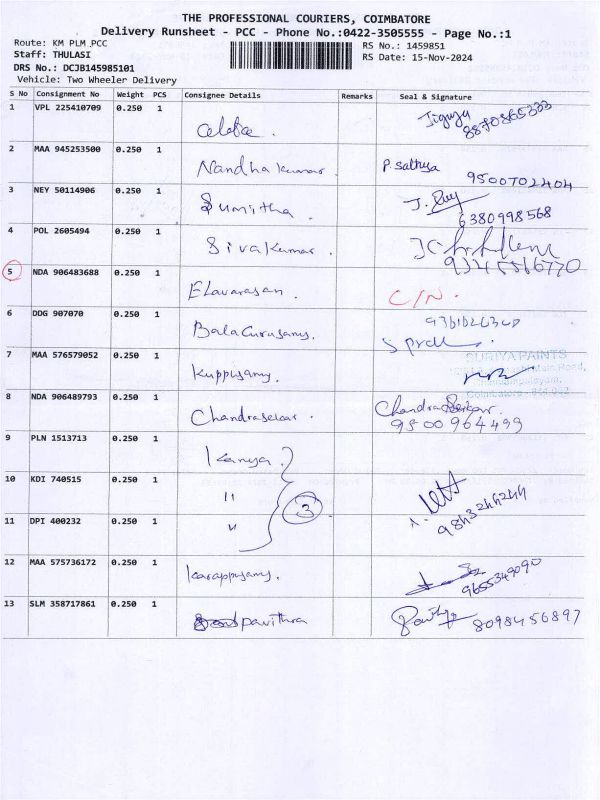 THE PROFESSIONAL COURIERS, COIMBATORE
Delivery Runsheet - PCC - Phone No.:0422-3505555 - Page No.:1
Route: KM PLM PCC
Staff: THULASI
DRS No.: DCJB145985101
Vehicle: Two Wheeler Delivery
RS No.: 1459851
RS Date: 15-Nov-2024
S No Consignment No Weight PCS Consignee Details Remarks Seal & Signature
1 VPL 225410709 0.250 1 8870865333
2 MAA 945253500 0.250 1 Nandhakumar P. Sathya 9500702404
3 NEY 50114906 0.250 1 Sumitha 6380998568
4 POL 2605494 0.250 1 Sivakumar
5 NDA 906483688 0.250 1 Elavarasan C/N.
6 DDG 907070 0.250 1 BalaGurusamy
7 MAA 576579052 0.250 1 Kuppusamy SURIYA PAINTS
8 NDA 906489793 0.250 1 Chandrasekar Chandrasekar 9500964499
9 PLN 1513713 0.250 1 Kanya
10 KDI 740515 0.250 1 " 3
11 DPI 400232 0.250 1 "
12 MAA 575736172 0.250 1 Karappusamy 9655349090
13 SLM 358717861 0.250 1 pavithra 8098456897